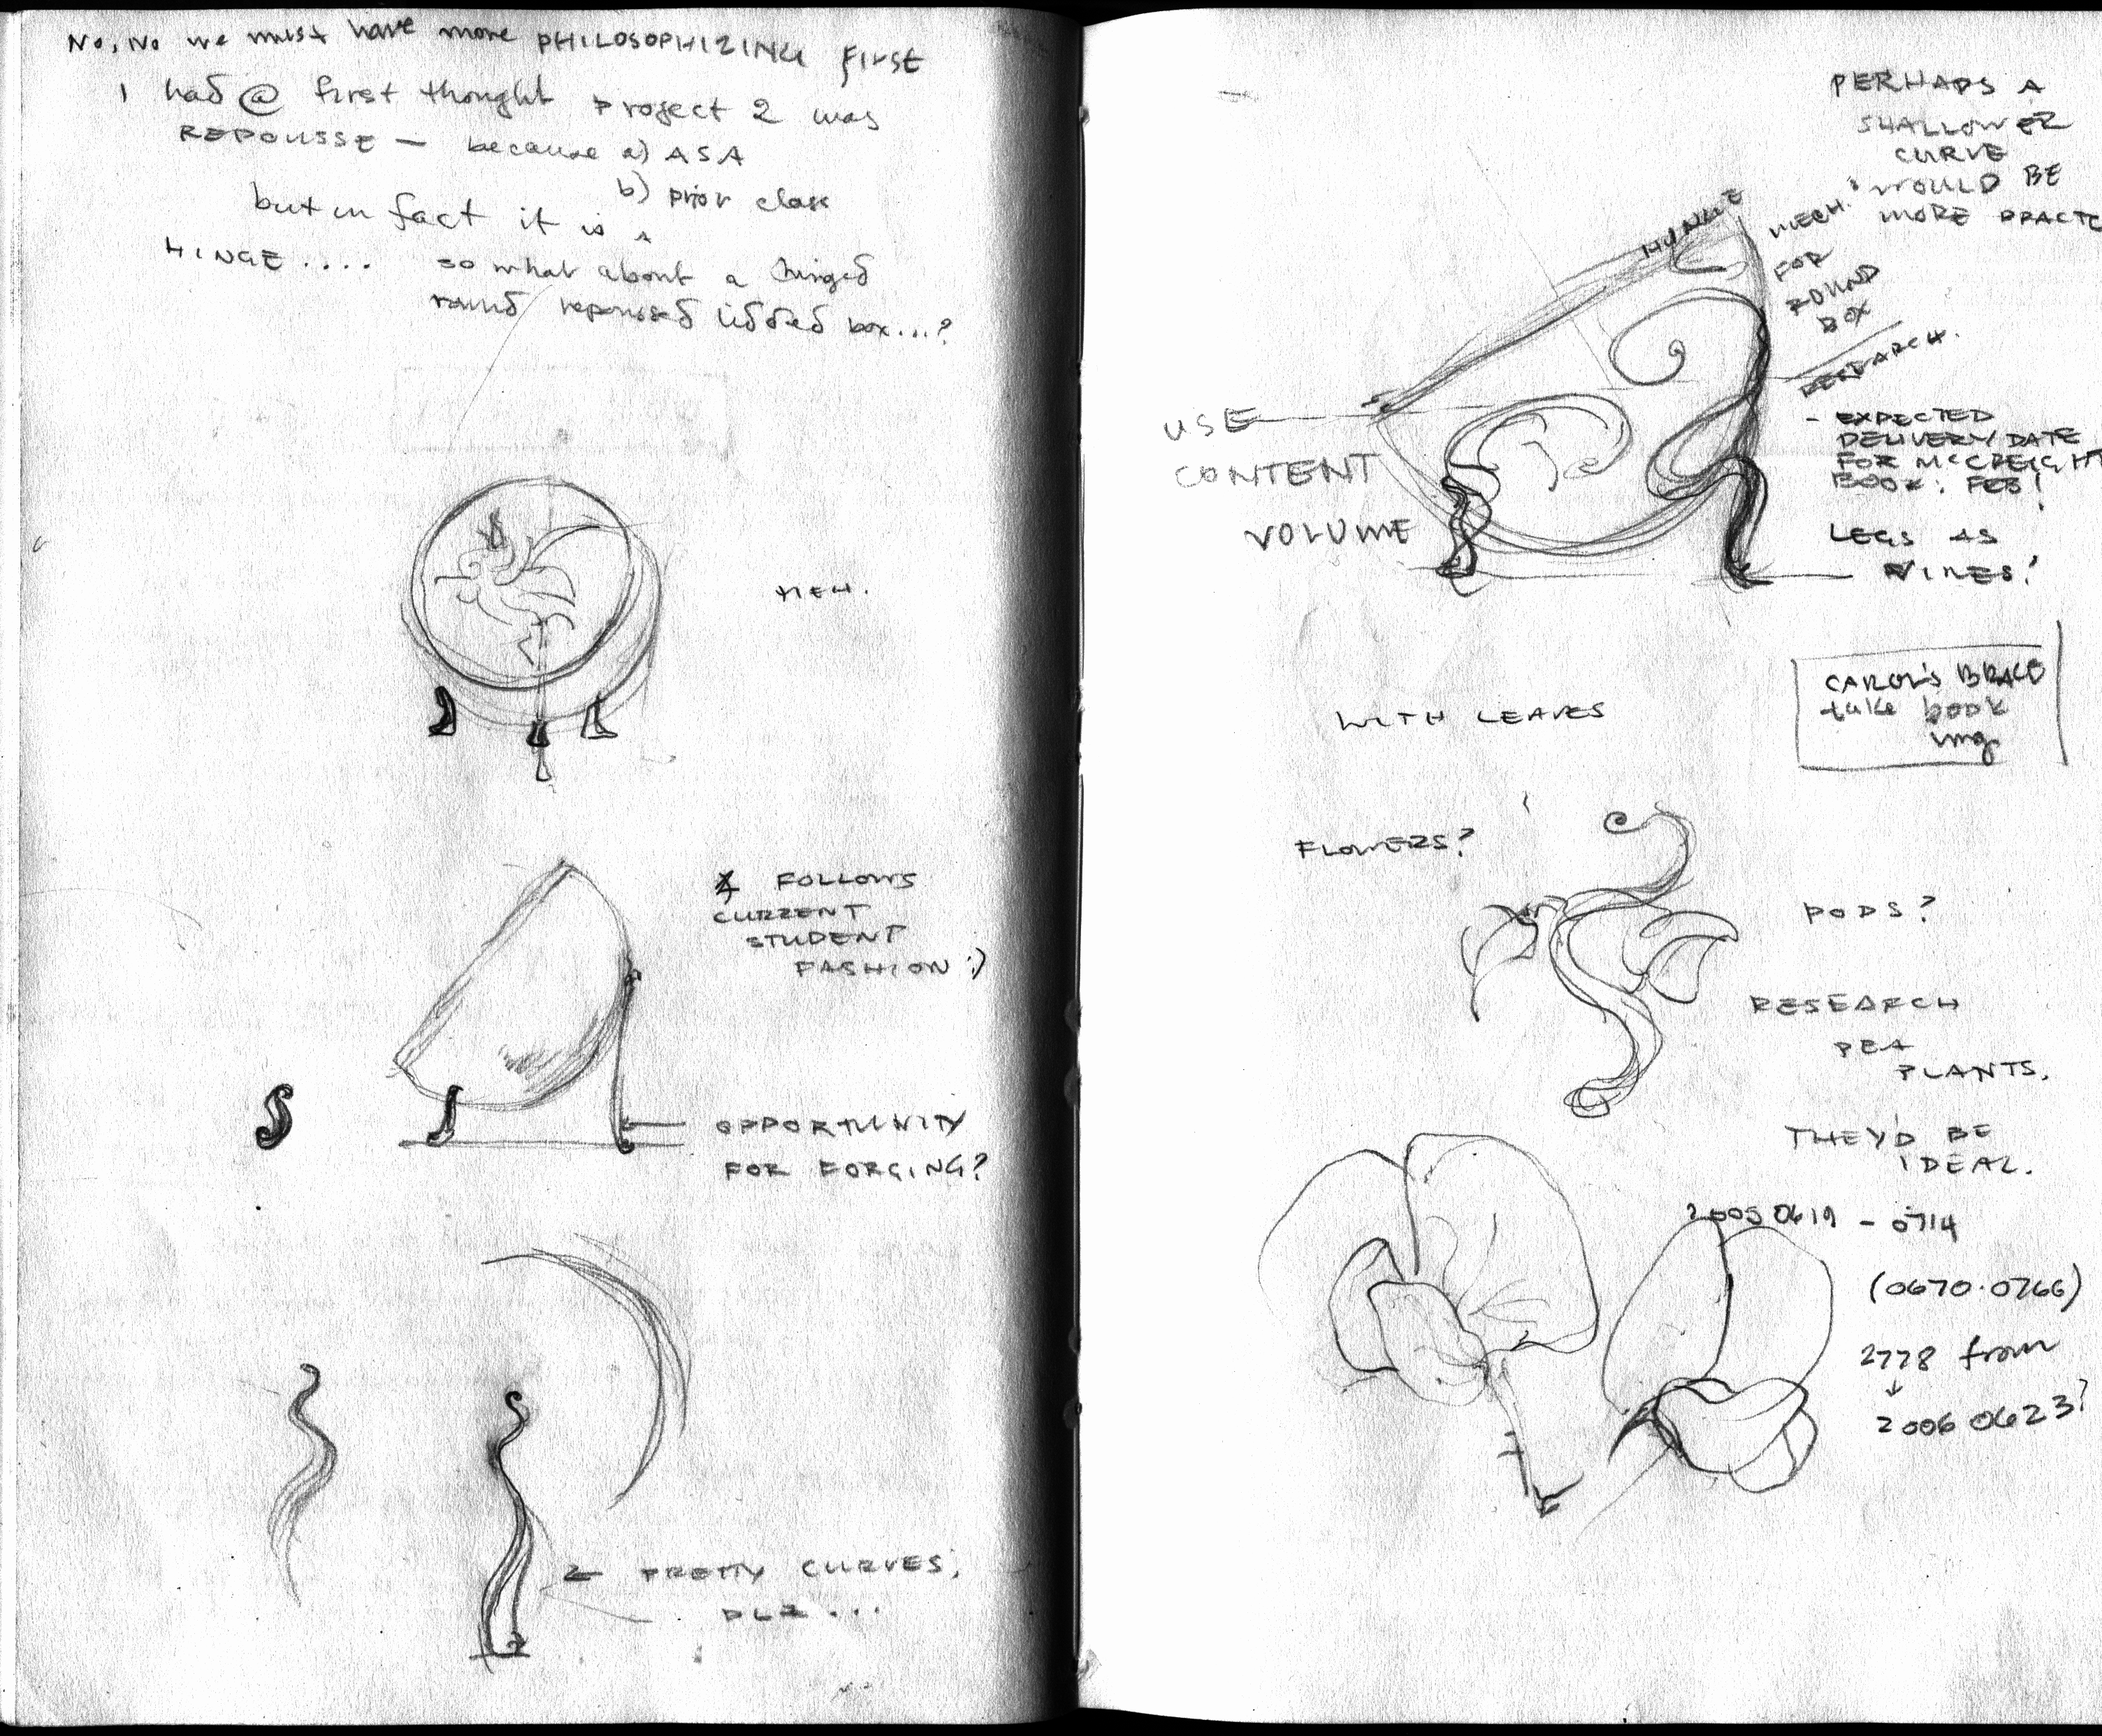 No, No we must have more PHILOSOPHIZING first
I had @ first thought project 2 was
REPOUSSE — because a) ASA
b) prior class
but in fact it is a
HINGE .... so what about a hinged
round repoussed lidded box...?
MEH.
FOLLOWS
CURRENT
STUDENT
FASHION :)
OPPORTUNITY
FOR FORGING?
← PRETTY CURVES,
PLZ ...
PERHAPS A
SHALLOWER
CURVE
WOULD BE
MORE PRACTC
HINGE
MECH.
FOR
ROUND
BOX
RESEARCH.
- EXPECTED
DELIVERY DATE
FOR McCREIGHT
BOOK: FEB!
USE
CONTENT
VOLUME
LEGS AS
VINES?
CAROL'S BRACE
take book
img
WITH LEAVES
FLOWERS?
PODS?
RESEARCH
PEA
PLANTS.
THEY'D BE
IDEAL.
20050619 - 0714
(0670.0766)
2778 from
↓
20060623?